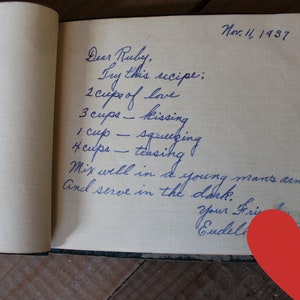 Nov. 11, 1937
Dear Ruby,
Try this recipe:
2 cups of love
3 cups — kissing
1 cup — squeezing
4 cups — teasing
Mix well in a young man's arm
And serve in the dark.
Your Frien
Eudel